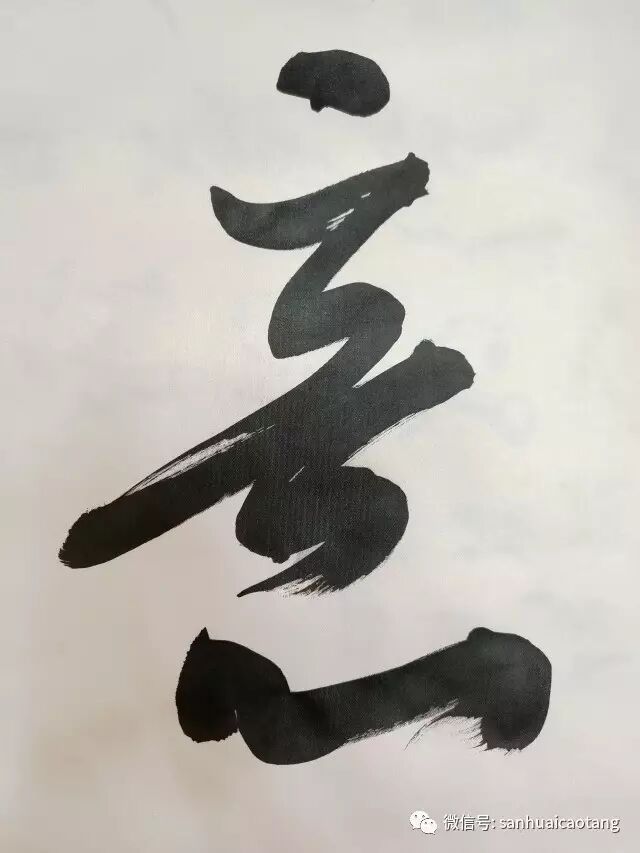 意
微信号: sanhuaicaotang